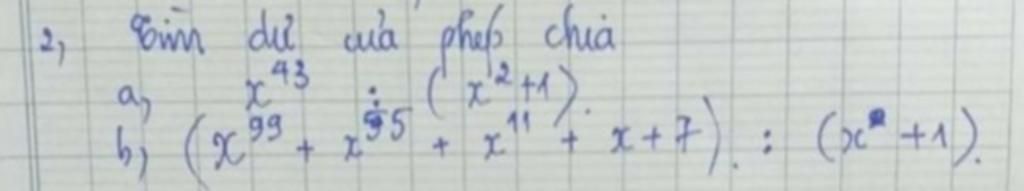 2, Tìm dư của phép chia
a, x^43 : (x^2+1).
b, (x^99 + x^55 + x^11 + x + 7) : (x^2 + 1).